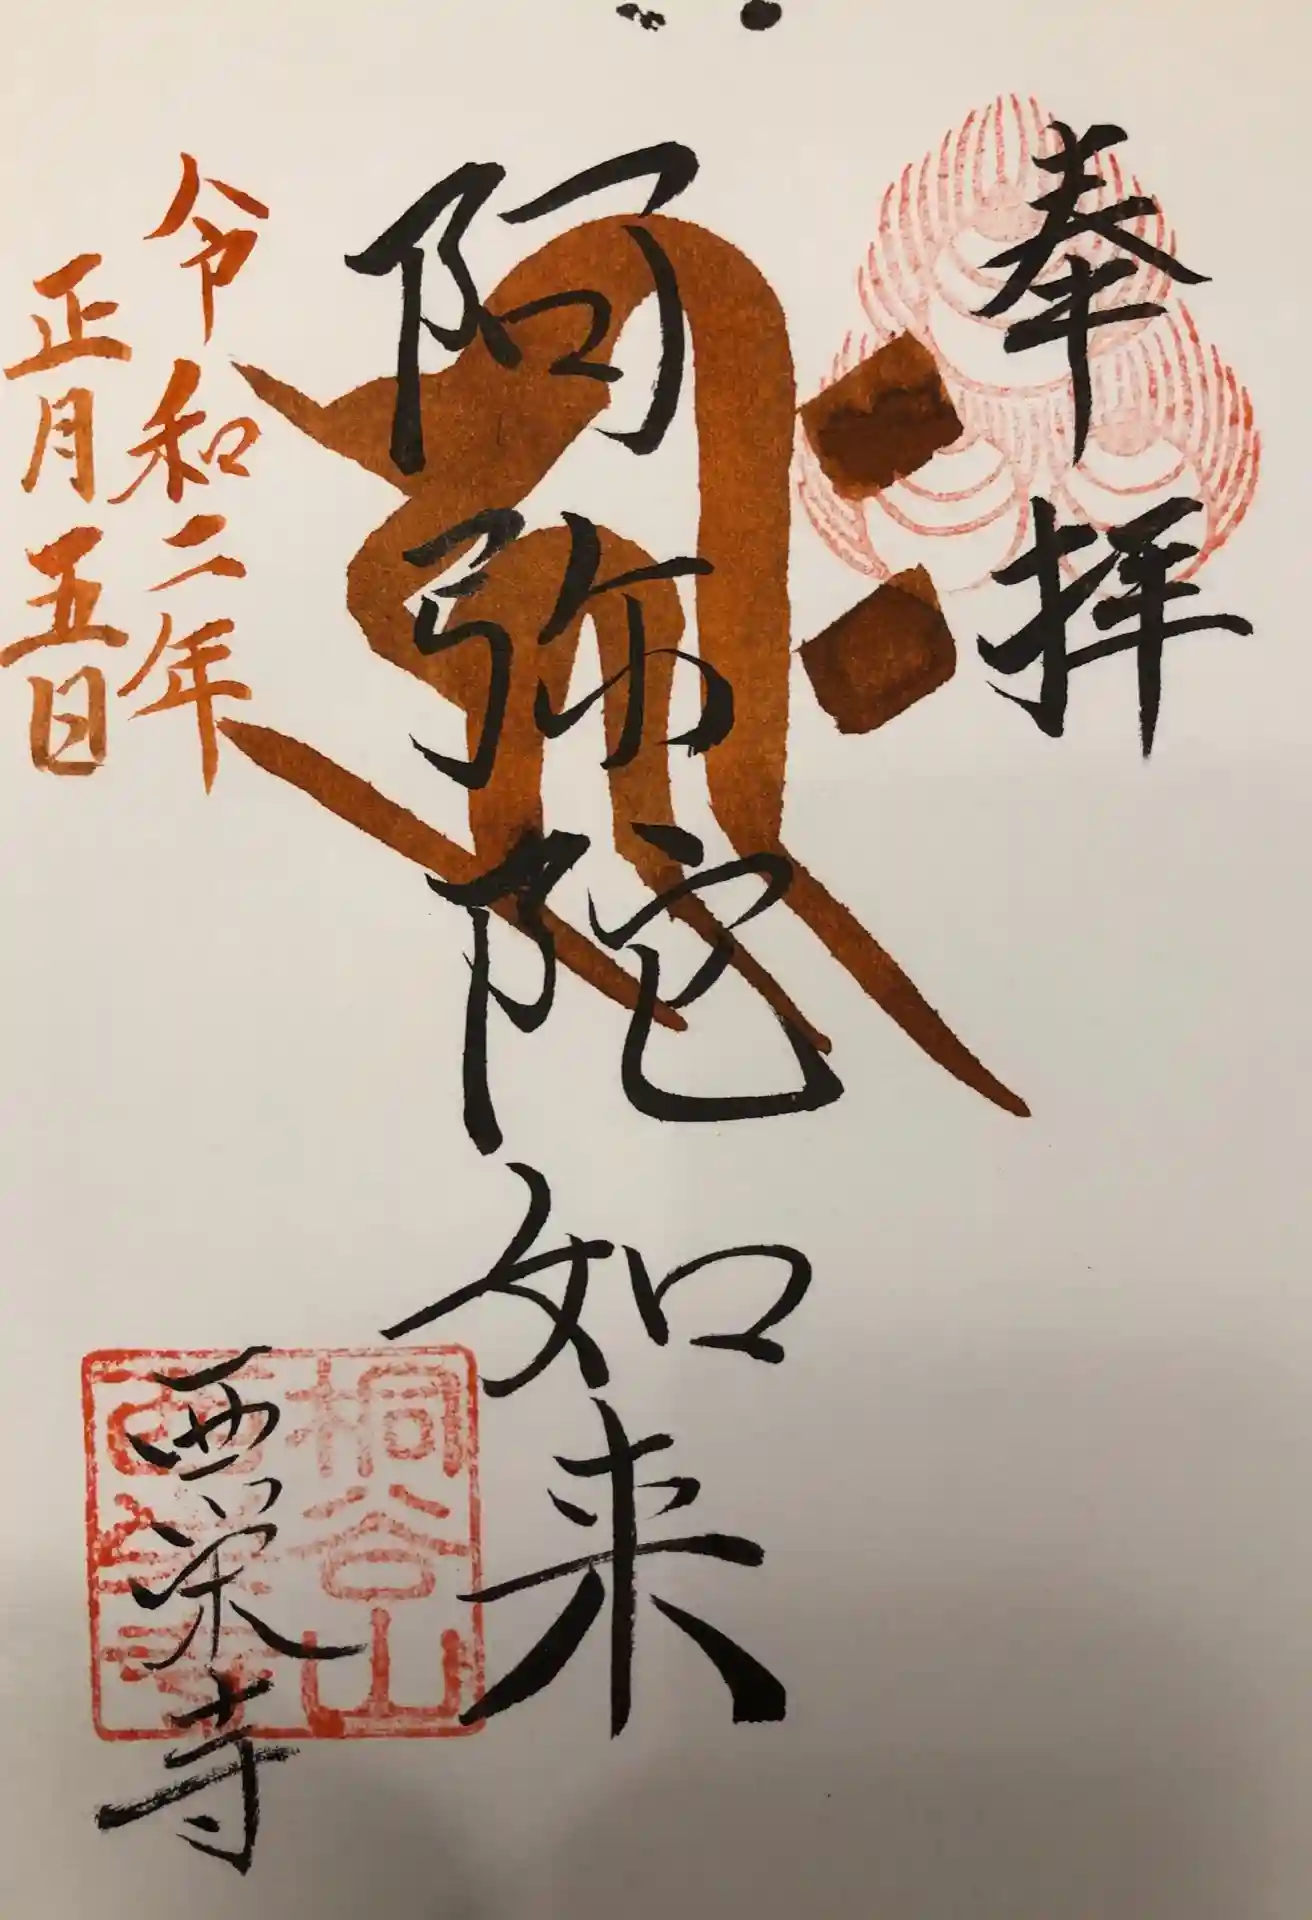 奉拝
阿弥陀如来
令和二年
正月五日
西栄寺
桐谷山
西栄寺